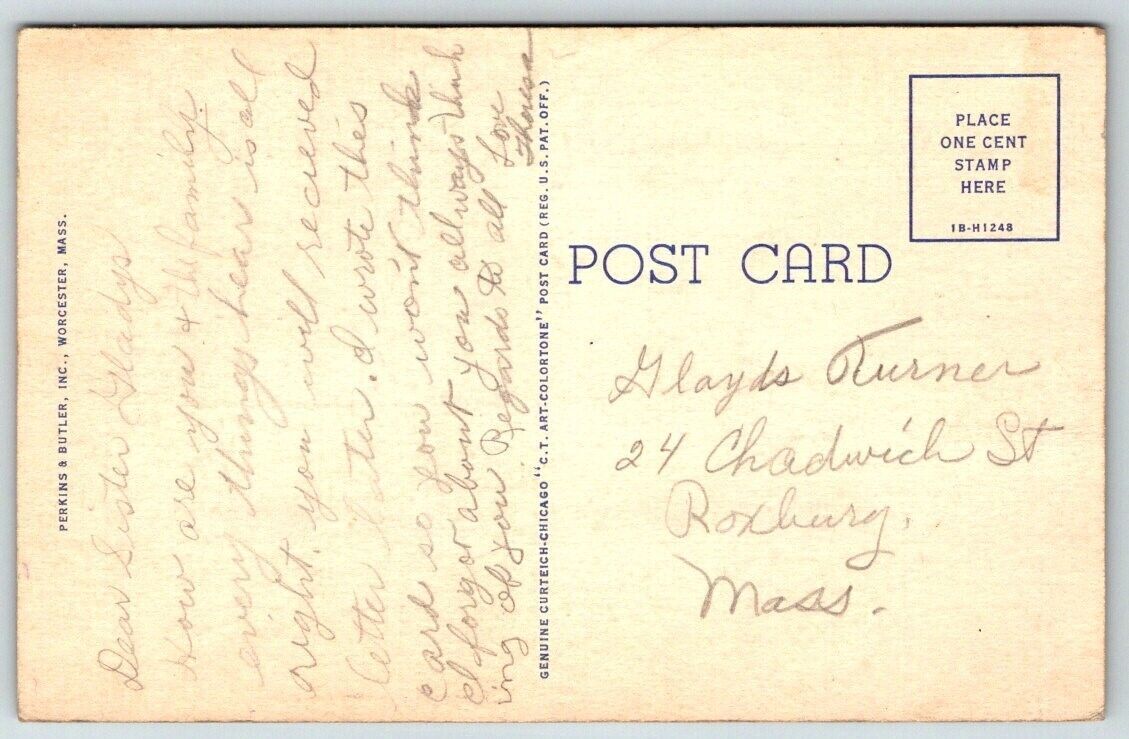 PERKINS & BUTLER, INC., WORCESTER, MASS.
Dear Sister Gladys
How are you & the family.
every things hears is all
right. you will recieved
letter later. I wrote this
card so you won't think
I forgor about you allways think
ing of you. Regards to all
Love
Theresa
GENUINE CURTEICH-CHICAGO "C.T. ART-COLORTONE" POST CARD (REG. U.S. PAT. OFF.)
PLACE
ONE CENT
STAMP
HERE
1B-H1248
POST CARD
Glayds Turner
24 Chadwich St
Roxburg,
Mass.